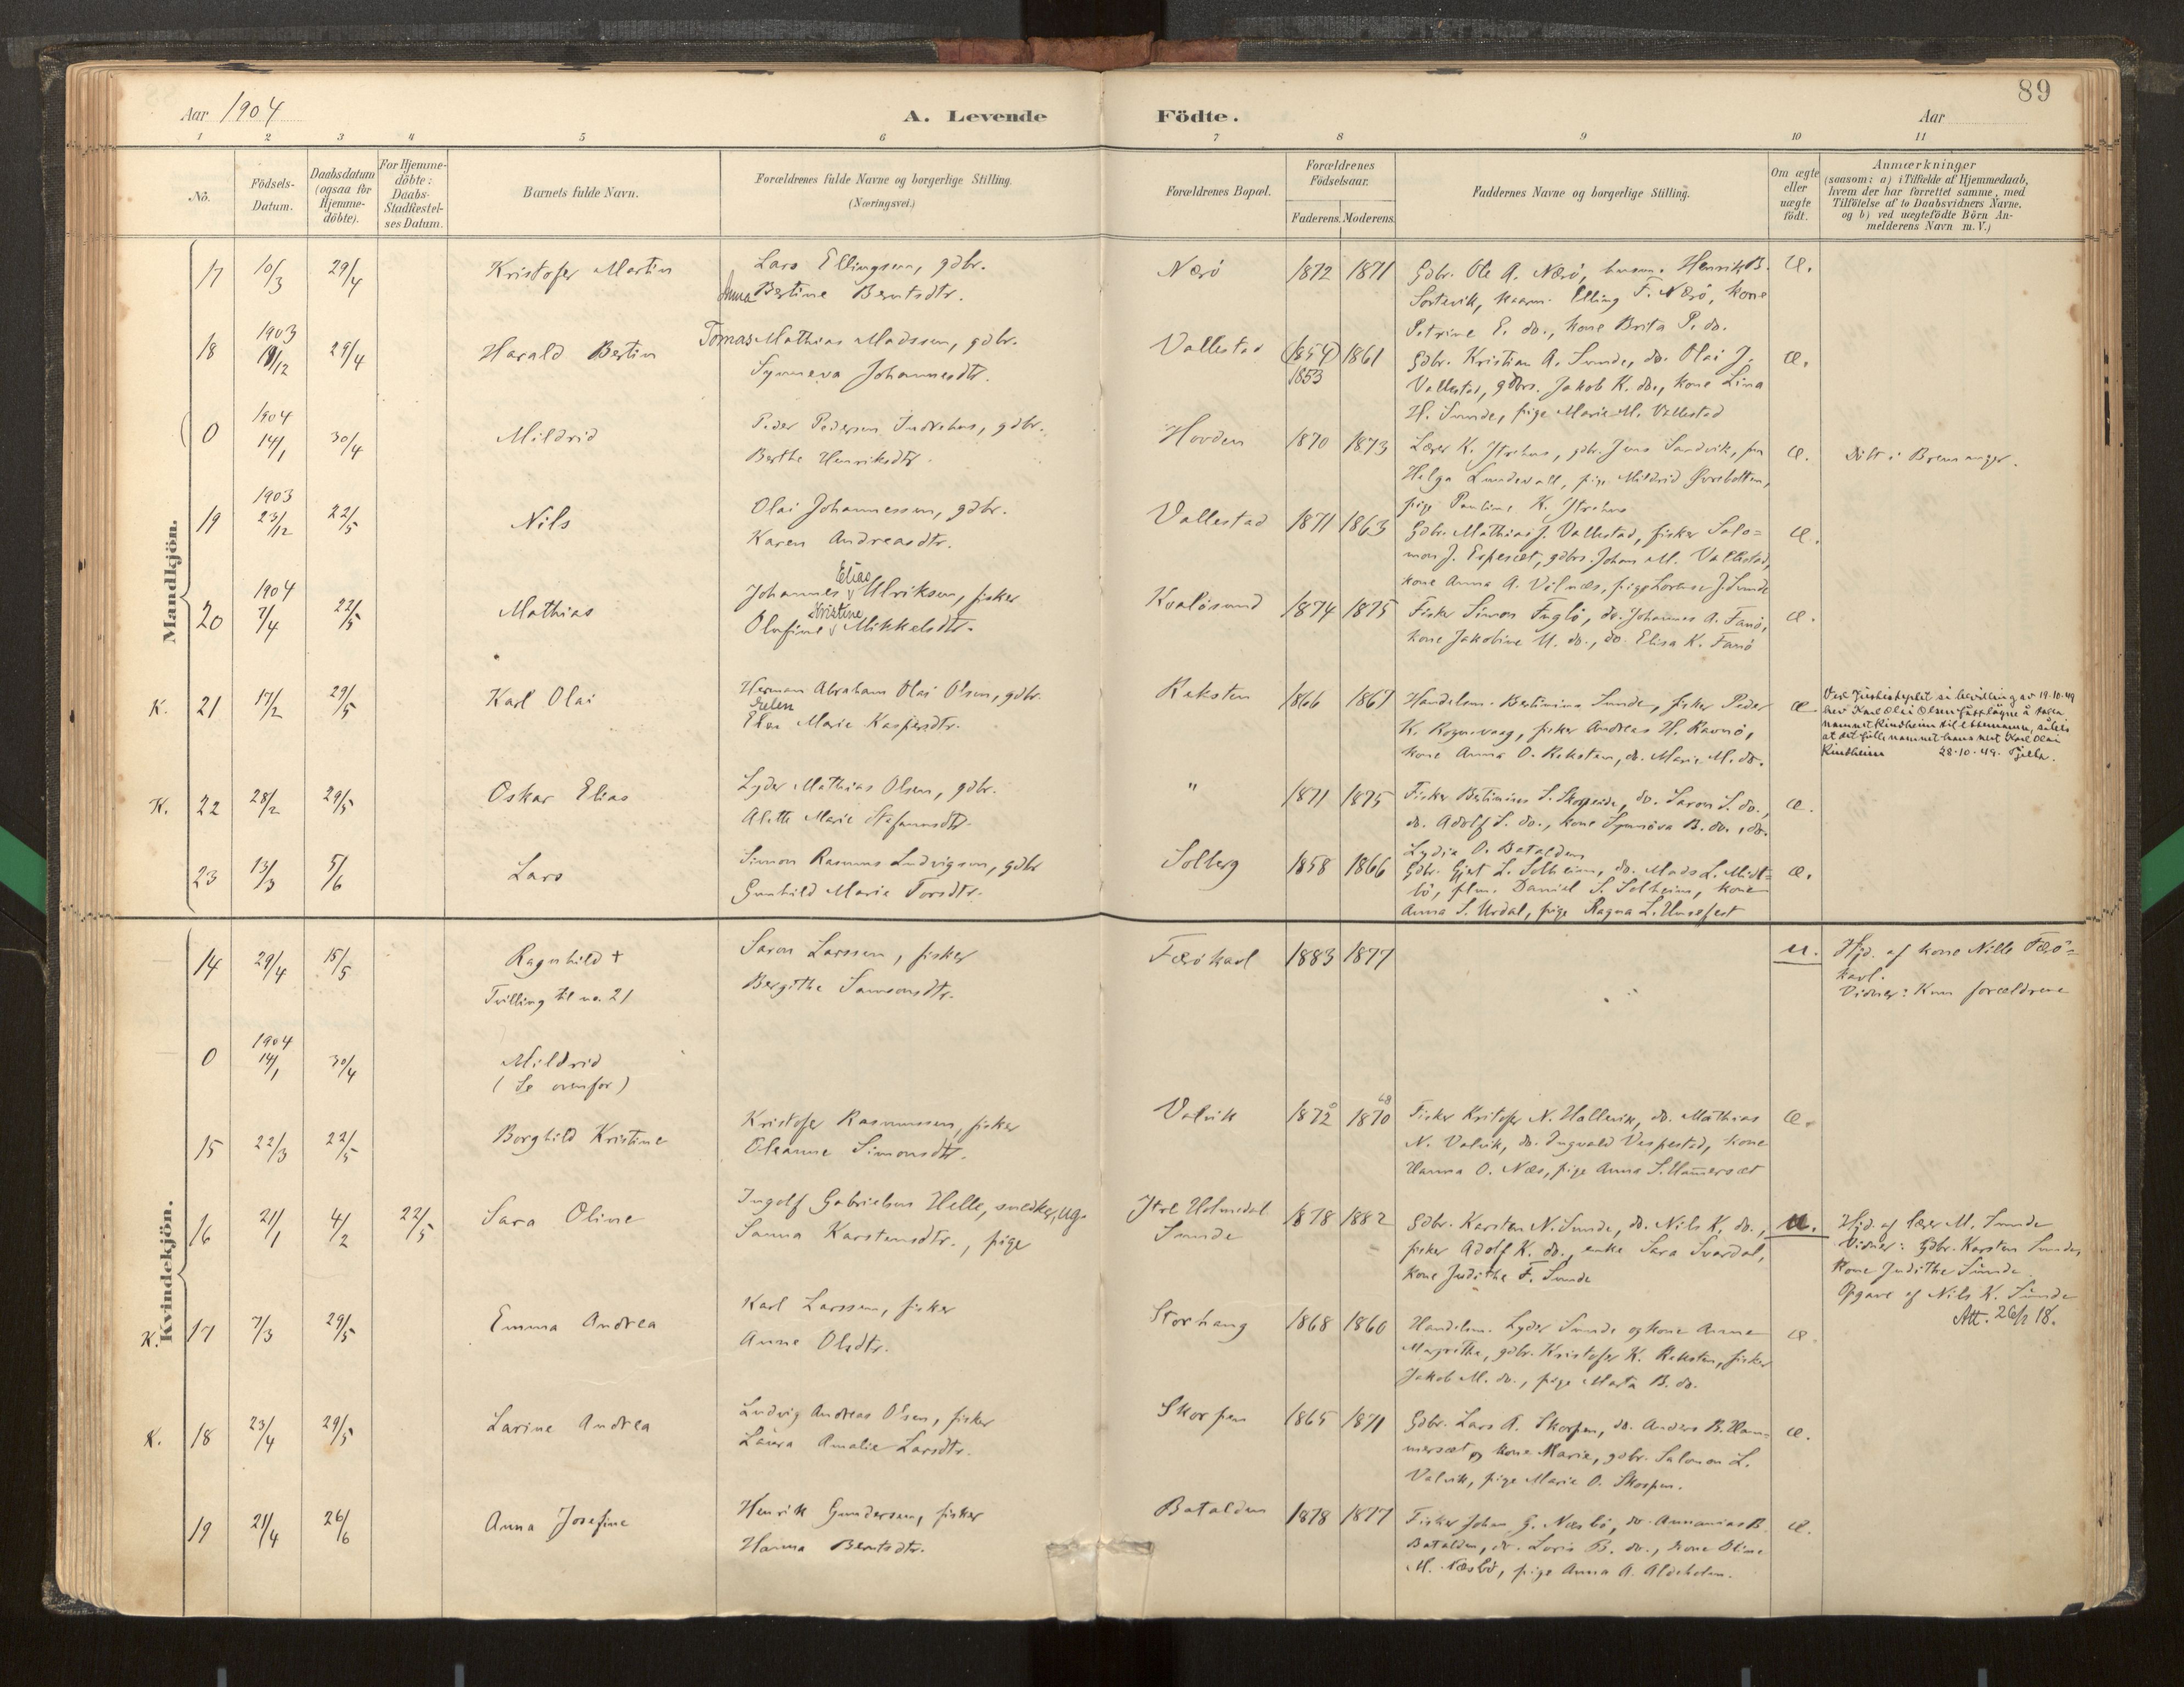 89
Aar 1904
A. Levende Födte.
Aar
1 2 3 4 5 6 7 8 9 10 11
No.
Födsels-Datum.
Daabsdatum (ogsaa for Hjemme-döbte).
For Hjemme-döbte: Daabs-Stadfestel-ses Datum.
Barnets fulde Navn.
Forældrenes fulde Navne og borgerlige Stilling.
(Næringsvei.)
Forældrenes Bopæl.
Forældrenes Födselsaar.
Faderens. Moderens.
Faddernes Navne og borgerlige Stilling.
Om ægte eller uægte födt.
Anmærkninger
(saasom: a) i Tilfælde af Hjemmedaab,
hvem der har forrettet samme, med
Tilföielse af to Daabsvidners Navne,
og b) ved uægtefödte Börn An-
melderens Navn m. V.)
Mandkjön.
17 10/3 29/4 Kristofer Martin
Lars Ellingsen, gdbr.
Anna Bertine Berntsdtr.
Nærö 1872 1871
Gdbr. Ole A. Nærö, Henrik B.
Sortevik, Elling F. Nærö, kone
Petrine E. do., kone Brita P. do.
Æ.
18 1903 29/4 Harald Bertin
Tomas Mathias Madssen, gdbr.
Synneva Johannesdtr.
Vallestad (1854) 1853 1861
Gdbr. Kristian A. Sunde, do. Olai J.
Vallestad, gdbrs. Jakob K. do., kone Lina
H. Sunde, pige Marie M. Vallestad
Æ.
0 1904 14/1 30/4 Mildrid
Peder Pedersen Indrehus, gdbr.
Berthe Henriksdtr.
Hovden 1870 1873
Lærer K. Ytrehus, gdbr. Jens Sandvik, fru
Helga Lundevall, pige Mildrid Øvrebotten,
pige Pauline K. Ytrehus
Æ.
Döbt i Bremanger.
19 1903 23/12 22/5 Nils
Olai Johannessen, gdbr.
Karen Andreasdtr.
Vallestad 1871 1863
Gdbr. Mathias J. Vallestad, fisker Salo=
mon J. Espeset, gdbrs. Johan M. Vallestad,
kone Anna A. Vilnæs, pige J. Sunde
Æ.
20 1904 7/4 22/5 Mathias
Johannes Elias Ulriksen, fisker
Olufine Kristine Mikkelsdtr.
Kvalösund 1874 1875
Fisker Simon Fuglö, do. Johannes A. Fanö,
kone Jakobine U. do., do. Elisa K. Fanö
Æ.
K. 21 17/2 29/5 Karl Olai
Herman Abraham Olai Olsen, gdbr.
Elen Marie Kaspersdtr.
Reksten 1866 1867
Handelsm. Bertinius Sunde, fisker Peder
K. Rognevaag, fisker Andreas H. Ravnö,
kone Anna O. Reksten, do. Marie M. do.
Æ
Ved Justisdeptet si bevilling av 19.10.49
hev Karl Olai Olsen fått løyve å taka
namnet Rindheim til etternamn, såleis
at det fulle namnet hans vert Karl Olai
Rindheim 28.10.49.
K. 22 28/2 29/5 Oskar Elias
Lyder Mathias Olsen, gdbr.
Alette Marie Stefannsdtr.
" 1871 1875
Fisker Bertinius S. do. Saron S. do.,
do. Adolf S. do., kone Synnöva B. do., do.
Lydia O. Batalden
Æ.
23 13/3 5/6 Lars
Simon Rasmus Ludvigsen, gdbr
Gunhild Marie Torsdtr.
Solberg 1858 1866
Gdbr. Gjert L. Solheim, do. Mads L. Midt=
bö, Daniel S. Solheim, kone
Anna S. Urdal, pige Ragna L. Husefest
Æ.
Kvindekjön.
14 29/4 15/5 Ragnhild +
Tvilling til no. 21
Saron Larssen, fisker
Bergithe Samsonsdtr.
Færökavl 1883 1877
U.
Hjd. af kone Nille Færö=
kavl.
Vidner: Kun forældrene
0 1904 14/1 30/4 Mildrid
(Se ovenfor)
15 22/3 22/5 Borghild Kristine
Kristofer Rasmussen, fisker
Oleanne Simonsdtr.
Valvik 1872 1870
Fisker Kristofer N. Hallevik, do. Mathias
N. Valvik, do. Ingvald Vespestad, kone
Hanna O. Næs, pige Anna S. Hammersæt
Æ.
16 21/1 4/2 22/5 Sara Oline
Ingolf Gabrielsen Helle, snedker, ug.
Sanna Karstensdtr., pige
Ytre Holmedal
Sunde
1878 1882
Gdbr. Karsten N. Sunde, do. Nils K. do.,
fisker Adolf K. do., enke Sara Svardal,
kone Judithe F. Sunde
U.
Hjd. af lærer M. Sunde
Vidner: Gdbr. Karsten Sunde,
kone Judithe Sunde
Opgave af Nils K. Sunde
Att. 26/2 18.
K. 17 7/3 29/5 Emma Andrea
Karl Larssen, fisker
Anne Olsdtr.
Storhaug 1868 1860
Handelsm. Lyder Sunde og kone Anna
Margrethe, gdbr. Kristofer K. Reksten, fisker
Jakob M. do., pige Marta B. do.
Æ
K. 18 23/4 29/5 Larine Andrea
Ludvig Andreas Olsen, fisker
Laura Amalie Larsdtr.
Skorpen 1865 1871
Gdbr. Lars A. Skorpen, do. Anders B. Ham=
mersæt og kone Marie, gdbr. Salomon L.
Valvik, pige Marie O. Skorpen.
Æ.
19 21/4 26/6 Anna Josefine
Henrik Gundersen, fisker
Hanna Berntsdtr.
Batalden 1878 1877
Fisker Johan G. Næsbö, do. Annanias B.
Batalden, do. Loris B. do., kone Oline
M. Næsbö, pige Anna A. Aldeholm.
Æ.